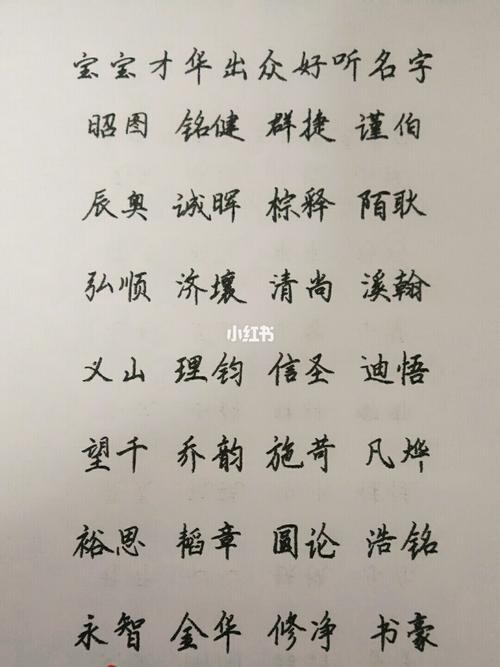 宝宝才华出众好听名字
昭图 铭健 群捷 谨伯
辰奥 诚晖 棕释 陌耿
弘顺 济壤 清尚 溪翰
小红书
义山 理钧 信圣 迪悟
望千 乔韵 施苛 凡烨
裕思 韬章 圆论 浩铭
永智 金华 修净 书豪